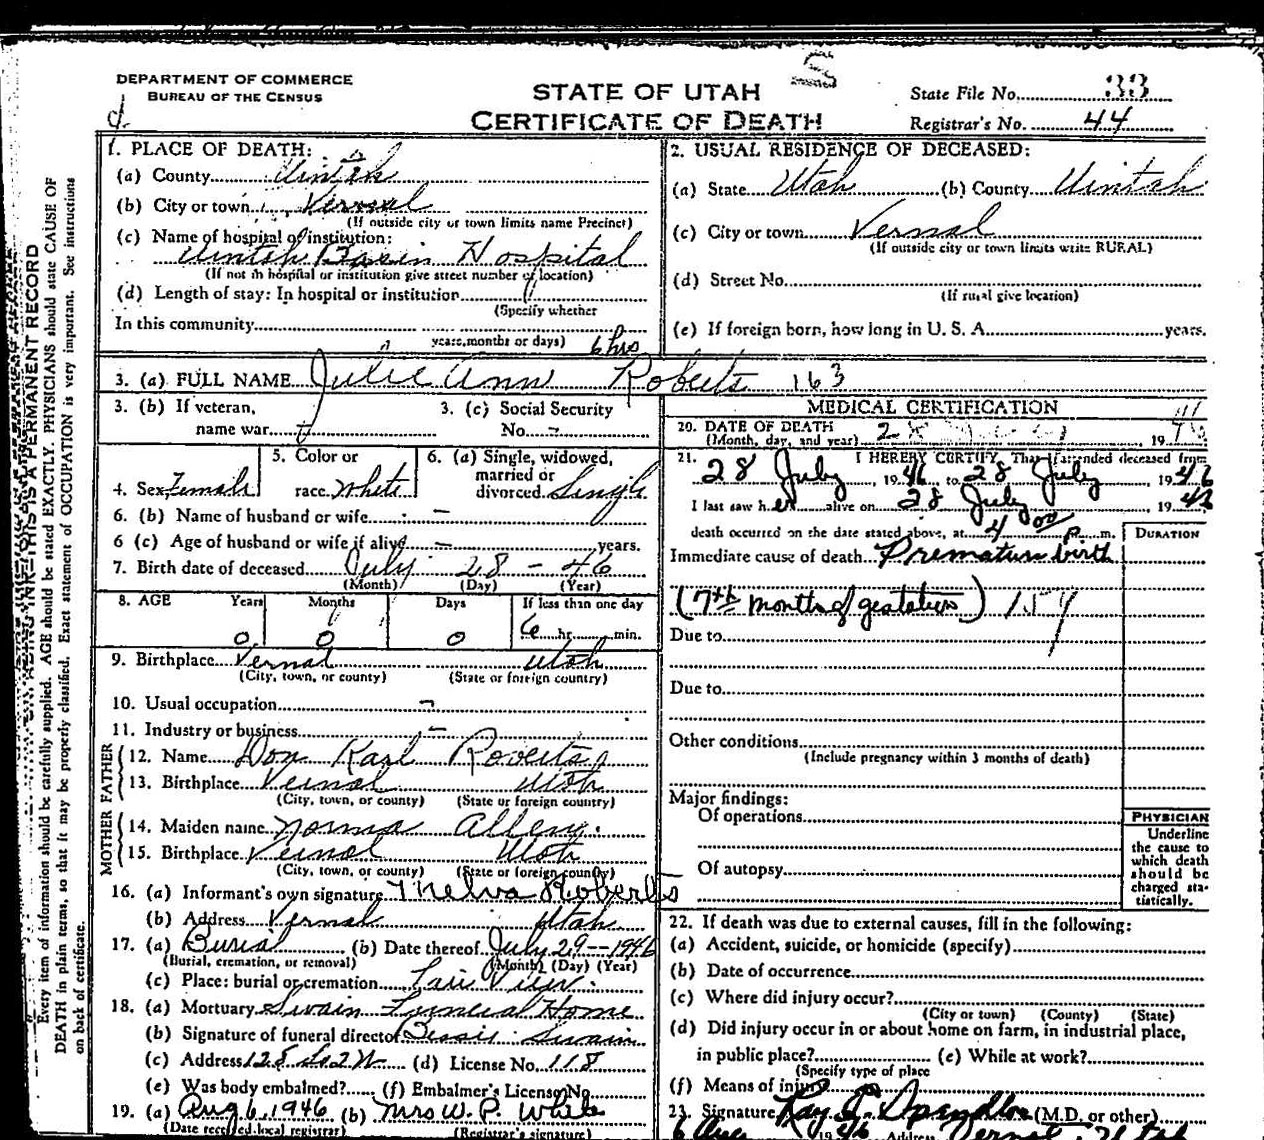 DEPARTMENT OF COMMERCE
BUREAU OF THE CENSUS
STATE OF UTAH
CERTIFICATE OF DEATH
State File No. 33
Registrar's No. 44
1. PLACE OF DEATH:
(a) County Uintah
(b) City or town Vernal
(If outside city or town limits name Precinct)
(c) Name of hospital or institution:
Uintah Basin Hospital
(If not in hospital or institution give street number or location)
(d) Length of stay: In hospital or institution
(Specify whether
In this community
years, months or days) 6 hrs
2. USUAL RESIDENCE OF DECEASED:
(a) State Utah (b) County Uintah
(c) City or town Vernal
(If outside city or town limits write RURAL)
(d) Street No.
(If rural give location)
(e) If foreign born, how long in U. S. A. years.
3. (a) FULL NAME Julie Ann Roberts 163
3. (b) If veteran,
name war
3. (c) Social Security
No. -
4. Sex Female
5. Color or
race White
6. (a) Single, widowed,
married or
divorced Single
6. (b) Name of husband or wife -
6 (c) Age of husband or wife if alive - years.
7. Birth date of deceased July 28 - 46
(Month) (Day) (Year)
8. AGE Years Months Days If less than one day
0 0 0 6 hr. min.
9. Birthplace Vernal Utah
(City, town, or county) (State or foreign country)
10. Usual occupation -
11. Industry or business -
FATHER
12. Name Don Karl Roberts
13. Birthplace Vernal Utah
(City, town, or county) (State or foreign country)
MOTHER
14. Maiden name Norma Allen
15. Birthplace Vernal Utah
(City, town, or county) (State or foreign country)
16. (a) Informant's own signature Thelva Roberts
(b) Address Vernal Utah
17. (a) Burial (b) Date thereof July 29--1946
(Burial, cremation, or removal) (Month) (Day) (Year)
(c) Place: burial or cremation View
18. (a) Mortuary Swain Funeral Home
(b) Signature of funeral director Bessie Swain
(c) Address 128 So 2 W (d) License No. 118
(e) Was body embalmed? (f) Embalmer's License No.
19. (a) Aug 6, 1946 (b) Mrs W. P. White
(Date received local registrar) (Registrar's signature)
MEDICAL CERTIFICATION
20. DATE OF DEATH
(Month, day, and year) 28 , 1946
21. I HEREBY CERTIFY, That I attended deceased from
28 July , 1946 to 28 July , 1946
I last saw her alive on 28 July , 1946
death occurred on the date stated above, at 4 00 P. m.
DURATION
Immediate cause of death Premature birth
(7th months of gestation) 159
Due to
Due to
Other conditions
(Include pregnancy within 3 months of death)
Major findings:
Of operations
Of autopsy
PHYSICIAN
Underline
the cause to
which death
should be
charged sta-
tistically.
22. If death was due to external causes, fill in the following:
(a) Accident, suicide, or homicide (specify)
(b) Date of occurrence
(c) Where did injury occur?
(City or town) (County) (State)
(d) Did injury occur in or about home on farm, in industrial place,
in public place? (e) While at work?
(Specify type of place
(f) Means of injury
23. Signature Ray E. Spendlove (M.D. or other)
6 Aug 1946 Address Vernal, Utah
THIS IS A PERMANENT RECORD
Every item of information should be carefully supplied. AGE should be stated EXACTLY. PHYSICIANS should state CAUSE OF
DEATH in plain terms, so that it may be properly classified. Exact statement of OCCUPATION is very important. See instructions
on back of certificate.